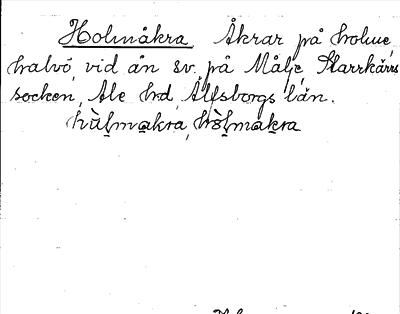 Holmåkra Åkrar på holme,
halvö, vid ån sv. på Målje Starrkärrs
socken, Ale hd, Älfsborgs län.
hùl̠ma̠kra, hòl̠ma̠kra